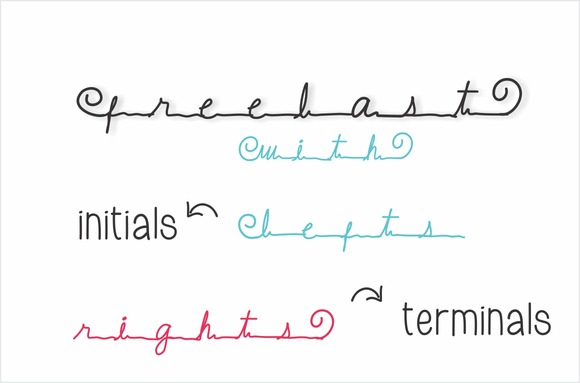 freelast
with
initials
lefts
rights
terminals